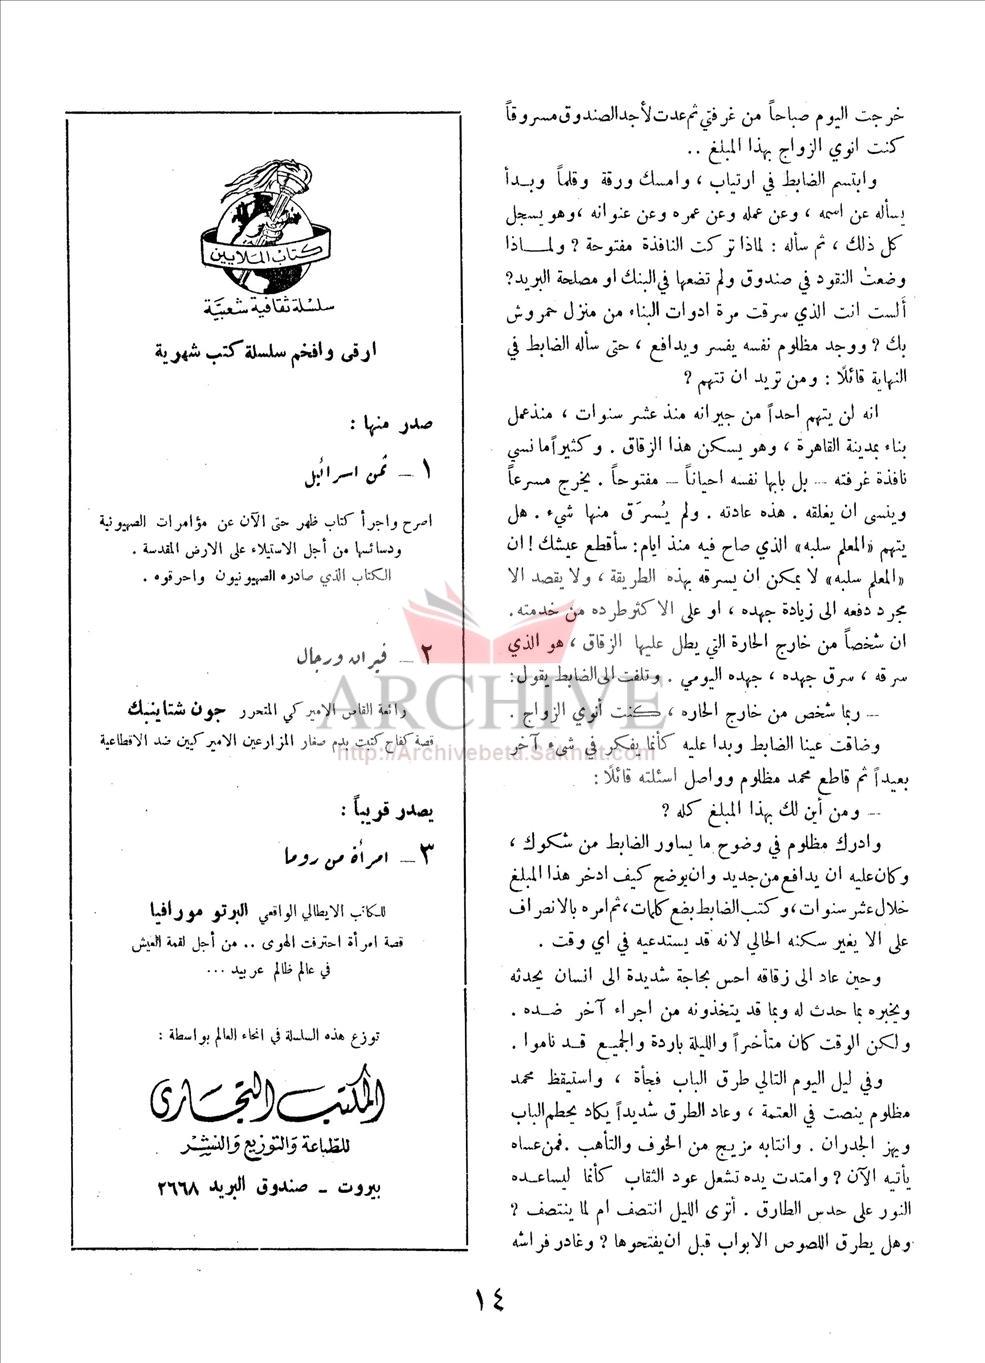 خرجت اليوم صباحاً من غرفتي ثم عدت لأجد الصندوق مسروقاً
كنت انوي الزواج بهذا المبلغ ..
وابتسم الضابط في ارتياب ، وامسك ورقة وقلماً وبدأ
يسأله عن اسمه ، وعن عمله وعن عمره وعن عنوانه ، وهو يسجل
كل ذلك ، ثم سأله : لماذا تركت النافذة مفتوحة ? ولماذا
وضعت النقود في صندوق ولم تضعها في البنك او مصلحة البريد?
ألست انت الذي سرقت مرة ادوات البناء من منزل حمروش
بك ? ووجد مظلوم نفسه يفسر ويدافع ، حتى سأله الضابط في
النهاية قائلًا : ومن تريد ان تتهم ?
انه لن يتهم احداً من جيرانه منذ عشر سنوات ، منذ عمل
بناء بمدينة القاهرة ، وهو يسكن هذا الزقاق . وكثيراً ما نسي
نافذة غرفته – بل بابها نفسه احياناً – مفتوحاً . يخرج مسرعاً
وينسى ان يغلقه . هذه عادته . ولم يُسرَق منها شيء . هل
يتهم «المعلم سلبه» الذي صاح فيه منذ ايام: سأقطع عيشك ! ان
«المعلم سلبه» لا يمكن ان يسرقه بهذه الطريقة ، ولا يقصد الا
مجرد دفعه الى زيادة جهده ، او على الاكثر طرده من خدمته.
ان شخصاً من خارج الحارة التي يطل عليها الزقاق ، هو الذي
سرقه ، سرق جهده ، جهده اليومي . وتلفت الى الضابط يقول:
– ربما شخص من خارج الحاره ، كنت أنوي الزواج .
وضاقت عينا الضابط وبدا عليه كأنما يفكر في شيء آخر
بعيداً ثم قاطع محمد مظلوم وواصل اسئلته قائلًا :
– ومن أين لك بهذا المبلغ كله ?
وادرك مظلوم في وضوح ما يساور الضابط من شكوك ،
وكان عليه ان يدافع من جديد وان يوضح كيف ادخر هذا المبلغ
خلال عشر سنوات ، وكتب الضابط بضع كلمات ، ثم امره بالانصراف
على الا يغير سكنه الحالي لانه قد يستدعيه في اي وقت .
وحين عاد الى زقاقه احس بحاجة شديدة الى انسان يحدثه
ويخبره بما حدث له وبما قد يتخذونه من اجراء آخر ضده .
ولكن الوقت كان متأخراً والليلة باردة والجميع قد ناموا .
وفي ليل اليوم التالي طرق الباب فجأة ، واستيقظ محمد
مظلوم ينصت في العتمة ، وعاد الطرق شديداً يكاد يحطم الباب
ويهز الجدران . وانتابه مزيج من الخوف والتأهب . فمن عساه
يأتيه الآن ? وامتدت يده تشعل عود الثقاب كأنما ليساعده
النور على حدس الطارق . أترى الليل انتصف ام لما ينتصف ?
وهل يطرق اللصوص الابواب قبل ان يفتحوها ? وغادر فراشه
كتاب الملايين
سلسلة ثقافية شعبية
ارقى وافخم سلسلة كتب شهرية
صدر منها :
١ – ثمن اسرائيل
اصرح واجرأ كتاب ظهر حتى الآن عن مؤامرات الصهيونية
ودسائسها من أجل الاستيلاء على الارض المقدسة .
الكتاب الذي صادره الصهيونيون واحرقوه .
٢ – فيران ورجال
رائعة القاص الاميركي المتحرر جون شتاينبك
قصة كفاح كتبت بدم صغار المزارعين الاميركيين ضد الاقطاعية
يصدر قريباً :
٣ – امرأة من روما
للكاتب الايطالي الواقعي البرتو مورافيا
قصة امرأة احترفت الهوى .. من أجل لقمة العيش
في عالم ظالم عربيد ...
توزع هذه السلسلة في انحاء العالم بواسطة :
المكتب التجاري
للطباعة والتوزيع والنشر
بيروت – صندوق البريد ٢٦٦٨
ARCHIVE
http://Archivebeta.Sakhrit.com
١٤